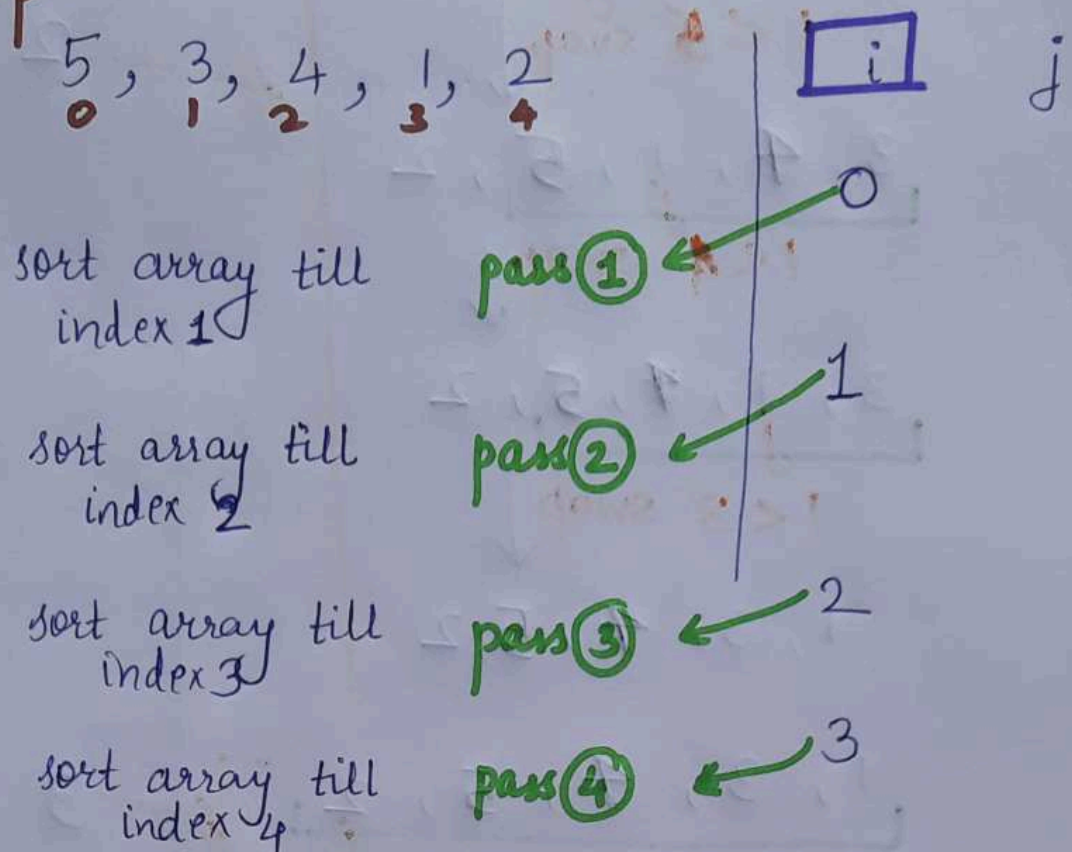 5, 3, 4, 1, 2
0 1 2 3 4
i j
sort array till
index 1
pass 1
0
sort array till
index 2
pass 2
1
sort array till
index 3
pass 3
2
sort array till
index 4
pass 4
3